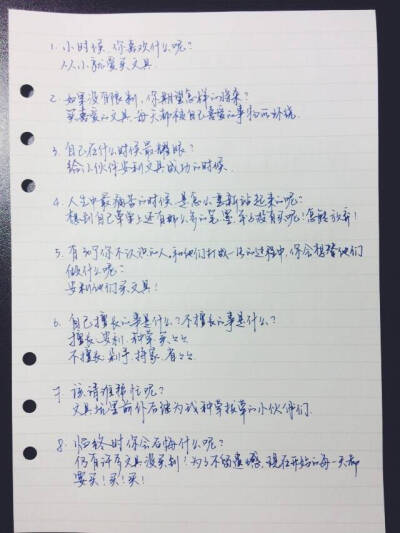 1. 小时候,你喜欢什么呢?
从小就爱买文具.
2. 如果没有限制,你期望怎样的将来?
买喜爱的文具,每天都被自己喜爱的事物所环绕.
3. 自己在什么时候最耀眼?
给小伙伴安利文具成功的时候.
4. 人生中最痛苦的时候,是怎么重新站起来的呢?
想到自己草单上还有那么多的笔、墨、本子没有买呢!怎能放弃!
5. 有幸了你不认识的人,和他们打成一片的过程中,你会想替他们
做什么呢?
安利他们买文具!
6. 自己擅长的事是什么?不擅长的事是什么?
擅长:安利、种草、买买买
不擅长:剁手、持家、省省省
7. 该请谁帮忙呢?
文具坑里前仆后继为我种草拔草的小伙伴们.
8. 临终时你会后悔什么呢?
仍有许多文具没买到!为了不留遗憾,现在开始的每一天都
要买!买!买!